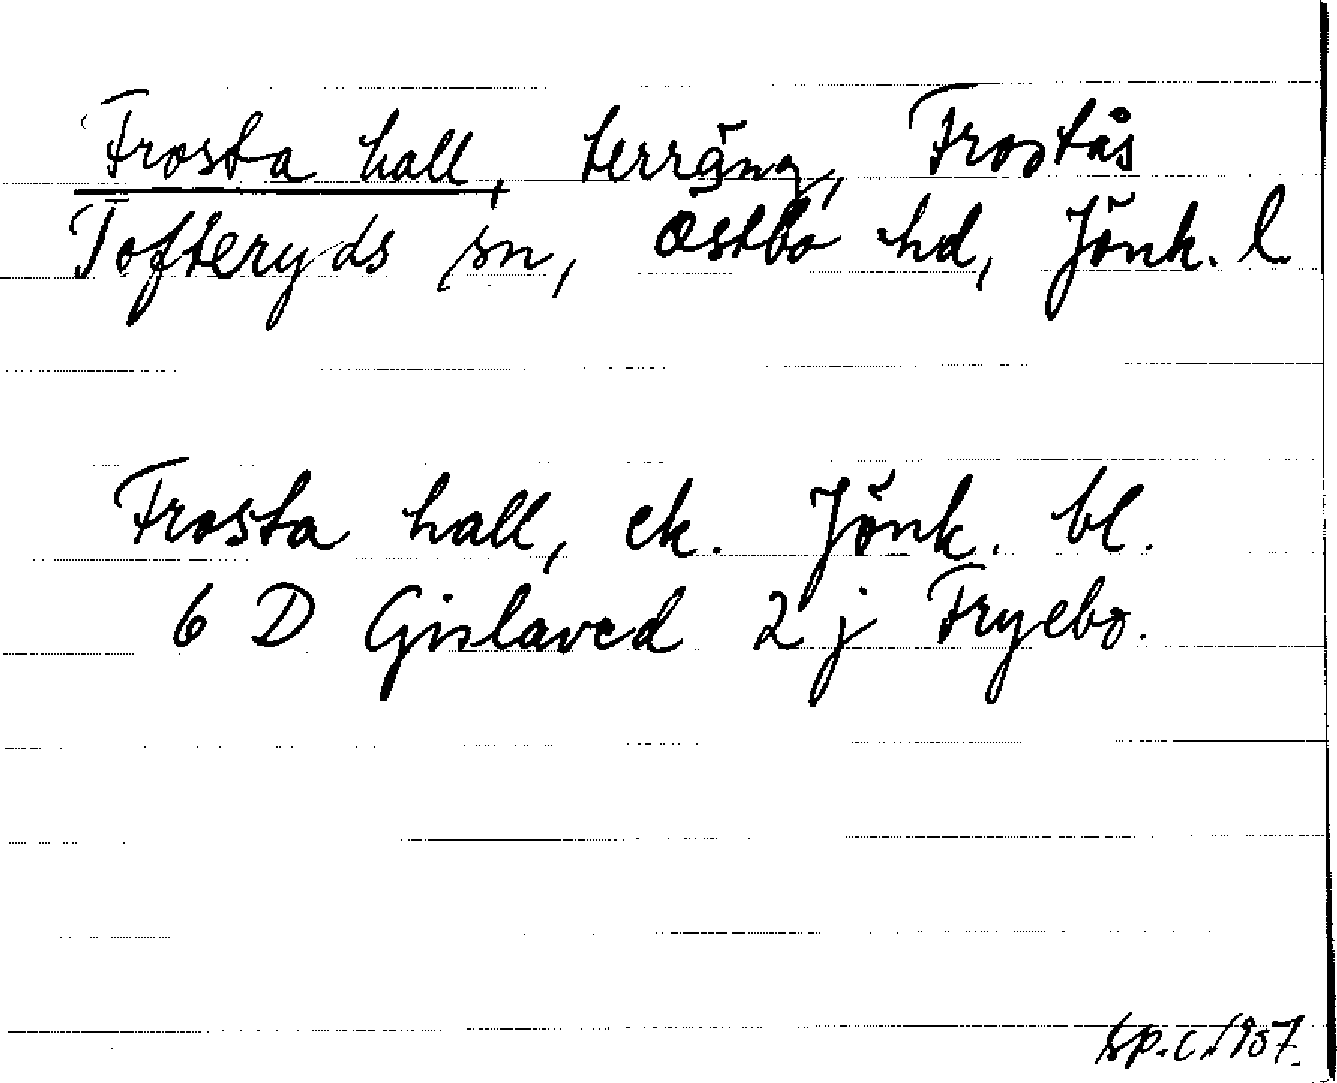 Frosta hall, terräng, Frostås
Tofteryds sn, Östbo hd, Jönk. l
Frosta hall, ek. Jönk. bl.
6 D Gislaved 2 j Fryebo.
1957.